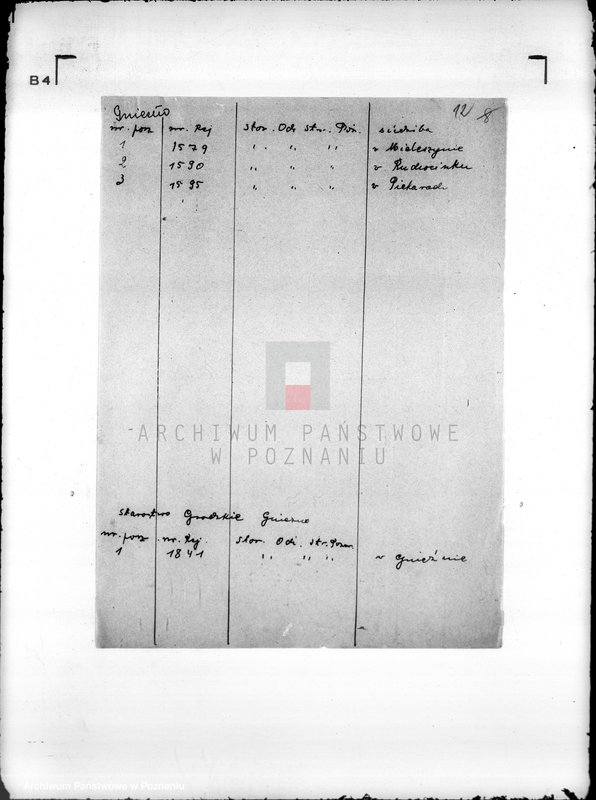 B4
Gniezno 12 8
nr. porz nr. Rej stow. Och. str. Poż. siedziba
1 1579 " " " w Mieleszynie
2 1590 " " " w Rudocinku
3 1595 " " " w Piekarach
ARCHIWUM PAŃSTWOWE
W POZNANIU
starostwo Grodzkie Gniezno
nr. porz. nr. Rej. stow. Och. str. Pożar.
1 1841 " " " w Gnieźnie
Archiwum Państwowe w Poznaniu